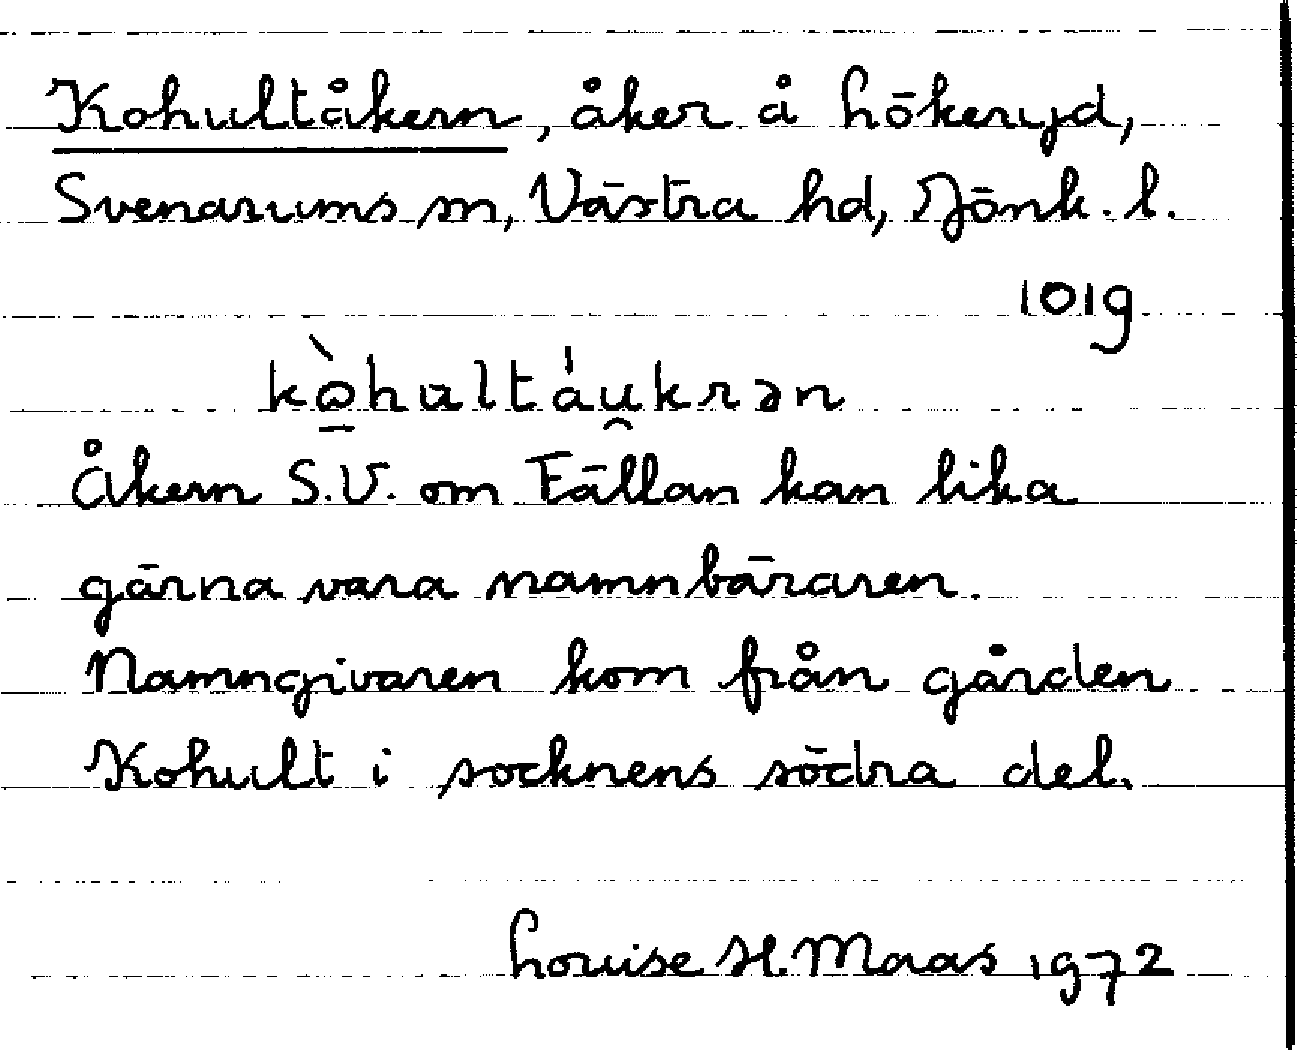 Kohultåkern, åker å Lökeryd,
Svenarums sn, Västra hd, Jönk. l.
1019
kò̱hultáu̯krən
Åkern S.V. om Fällan kan lika
gärna vara namnbäraren.
Namngivaren kom från gården
Kohult i socknens södra del.
Louise H. Maas 1972